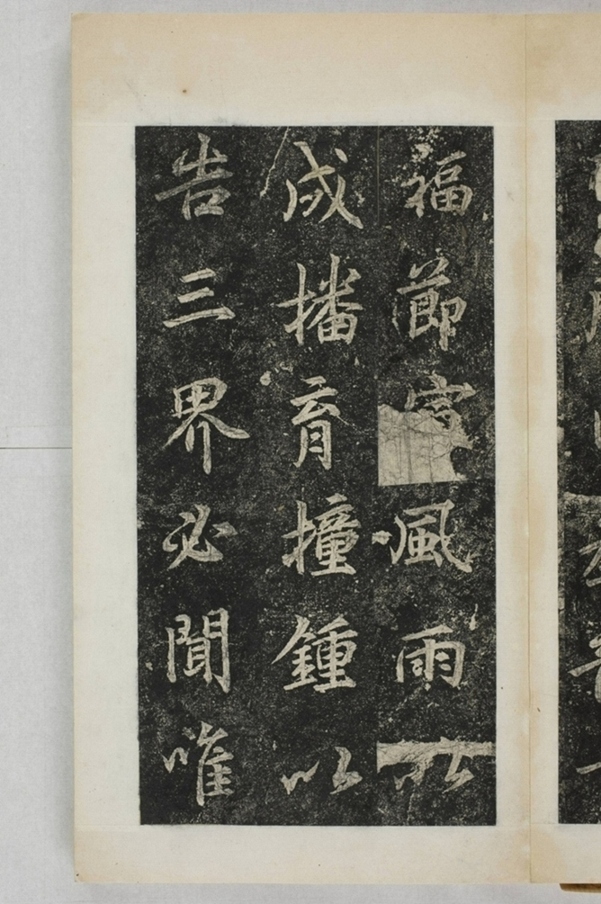 福節宣風雨以
成播育撞鍾以
告三界必聞唯